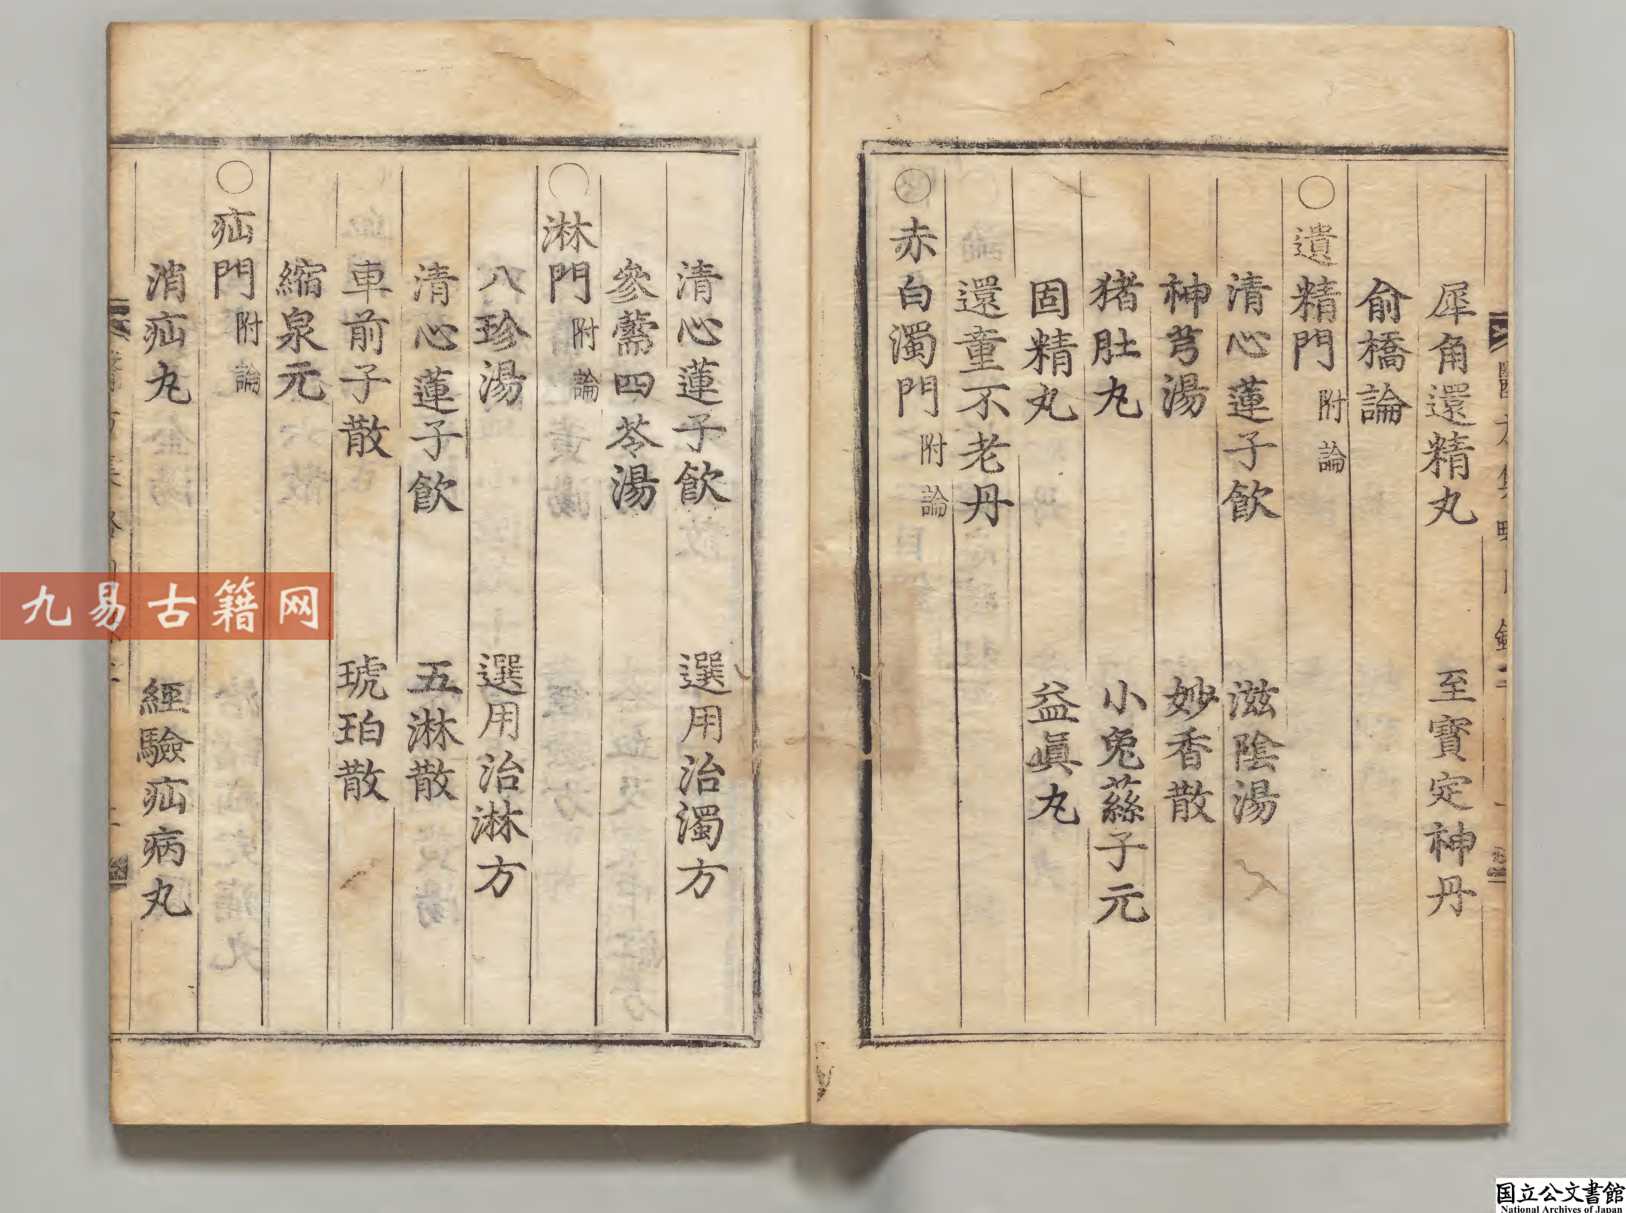 犀角還精丸　至寶定神丹
俞橋論
○遺精門附論
清心蓮子飲　滋陰湯
神芎湯　妙香散
猪肚丸　小兔蕬子元
固精丸　益眞丸
還童不老丹
○赤白濁門附論
清心蓮子飲　選用治濁方
參䓴四苓湯
○淋門附論
八珍湯　選用治淋方
清心蓮子飲　五淋散
車前子散　琥珀散
縮泉元
○疝門附論
消疝丸　經驗疝病丸
九易古籍网
国立公文書館
National Archives of Japan